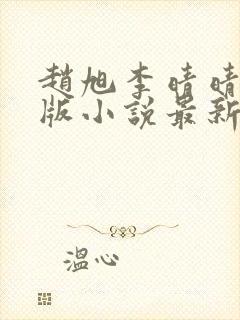 趙旭李晴晴
版小說最新
溫心